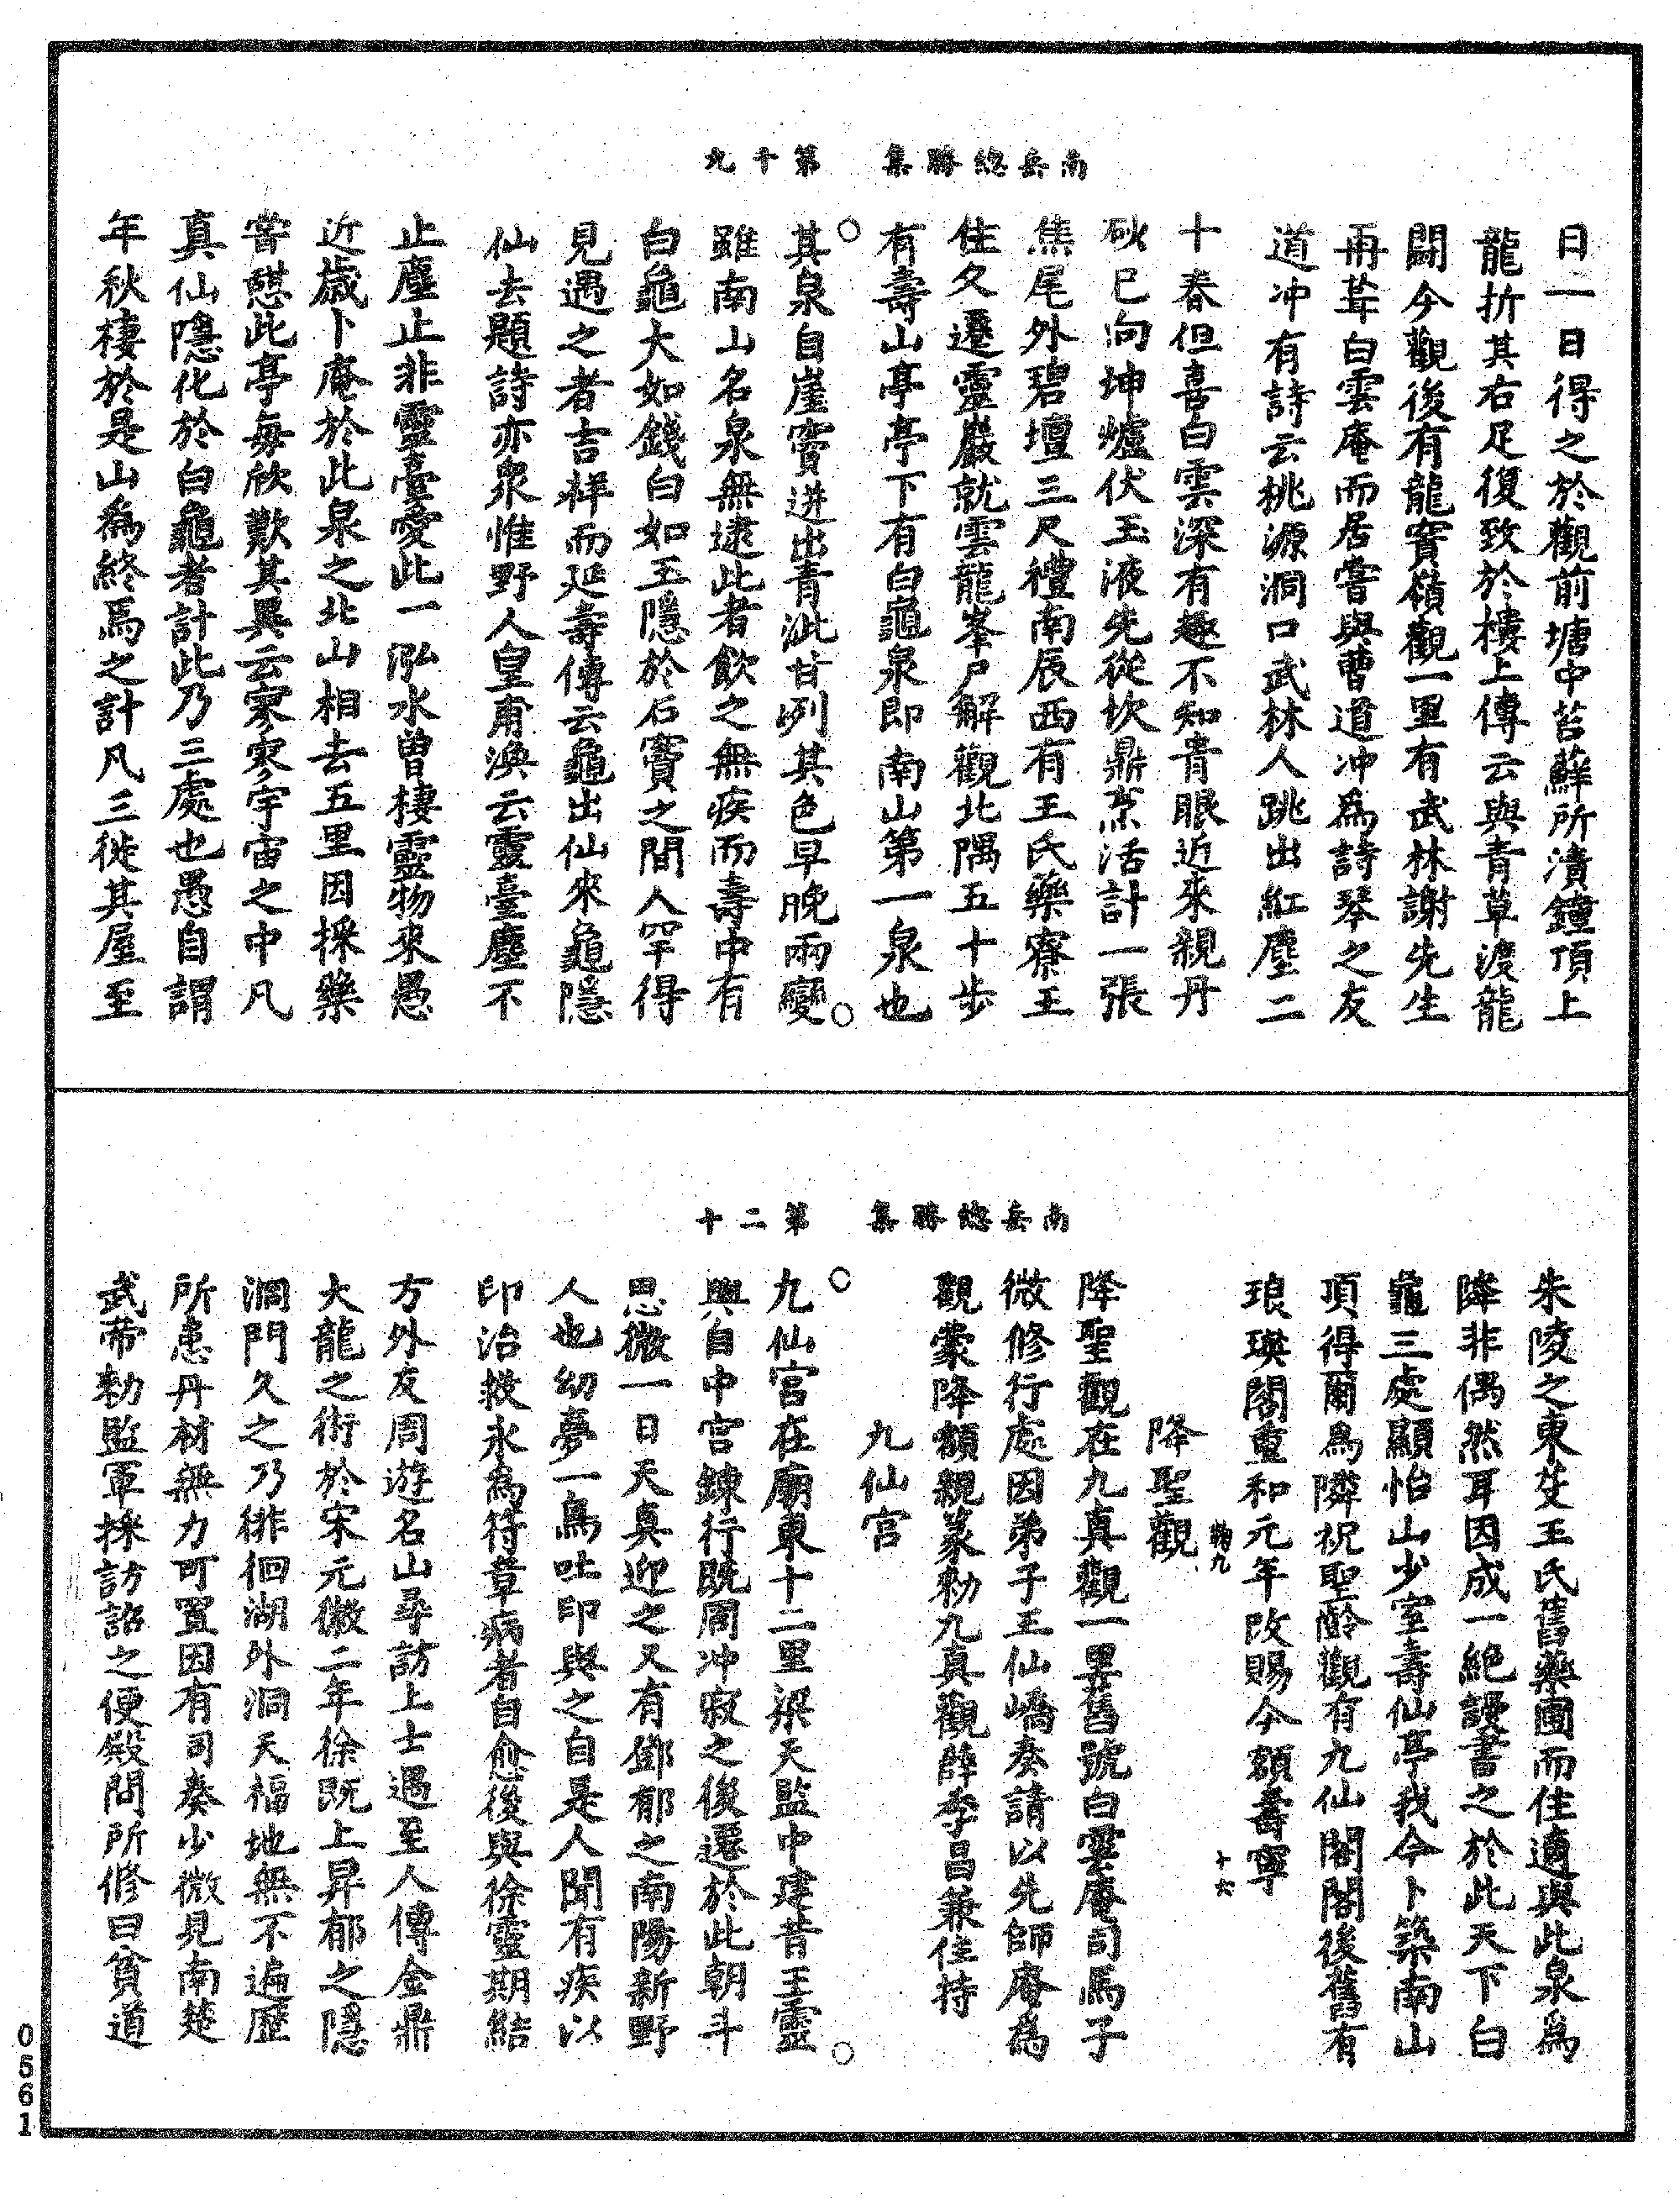 南岳總勝集　第十九
日一日得之於觀前塘中苔蘚所漬鐘頂上
龍折其右足復致於樓上傳云與青草渡龍
鬪今觀後有龍竇嶺觀一里有武林謝先生
再葺白雲庵而居嘗與曹道冲為詩琴之友
道冲有詩云桃源洞口武林人跳出紅塵二
十春但喜白雲深有趣不知青眼近來親丹
砂已向坤爐伏玉液先從坎鼎烹活計一張
焦尾外碧壇三尺禮南辰西有王氏藥寮王
住久遷靈巖就雲龍峯尸解觀北隅五十步
有壽山亭亭下有白龜泉即南山第一泉也
○其泉自崖竇迸出青泚甘冽其色早晚兩變○
雖南山名泉無逮此者飲之無疾而壽中有
白龜大如錢白如玉隱於石竇之間人罕得
見遇之者吉祥而延壽傳云龜出仙來龜隱
仙去題詩亦衆惟野人皇甫渙云靈臺塵不
止塵止非靈臺愛此一泓水曾棲靈物來愚
近歲卜庵於此泉之北山相去五里因採藥
嘗憇此亭每欣歎其異云寥寥宇宙之中凡
真仙隱化於白龜者計此乃三處也愚自謂
年秋棲於是山為終焉之計凡三徙其屋至
南岳總勝集　第二十
朱陵之東芟王氏舊藥圃而住適與此泉為
降非偶然耳因成一絶謾書之於此天下白
龜三處顯怡山少室壽仙亭我今卜築南山
頂得爾為隣祝聖齡觀有九仙閣閣後舊有
琅瑛閣重和元年改賜今額壽寧
鞠九　十六
降聖觀
降聖觀在九真觀一里舊號白雲庵司馬子
微修行處因弟子王仙嶠奏請以先師庵為
觀蒙降額親篆勑九真觀薛季昌兼住持
九仙宮
○九仙宮在廟東十二里梁天監中建昔王靈○
輿自中宮鍊行既周冲寂之後遷於此朝斗
思微一日天真迎之又有鄧郁之南陽新野
人也幼夢一鳥吐印與之自是人聞有疾以
印治救水為符章病者自愈後與徐靈期結
方外友周遊名山尋訪上士遇至人傳金鼎
大龍之術於宋元徽二年徐既上昇郁之隱
洞門久之乃徘徊湖外洞天福地無不遍歷
所患丹材無力可置因有司奏少微見南楚
武帝勑監軍採訪詔之便殿問所修曰貧道
0561